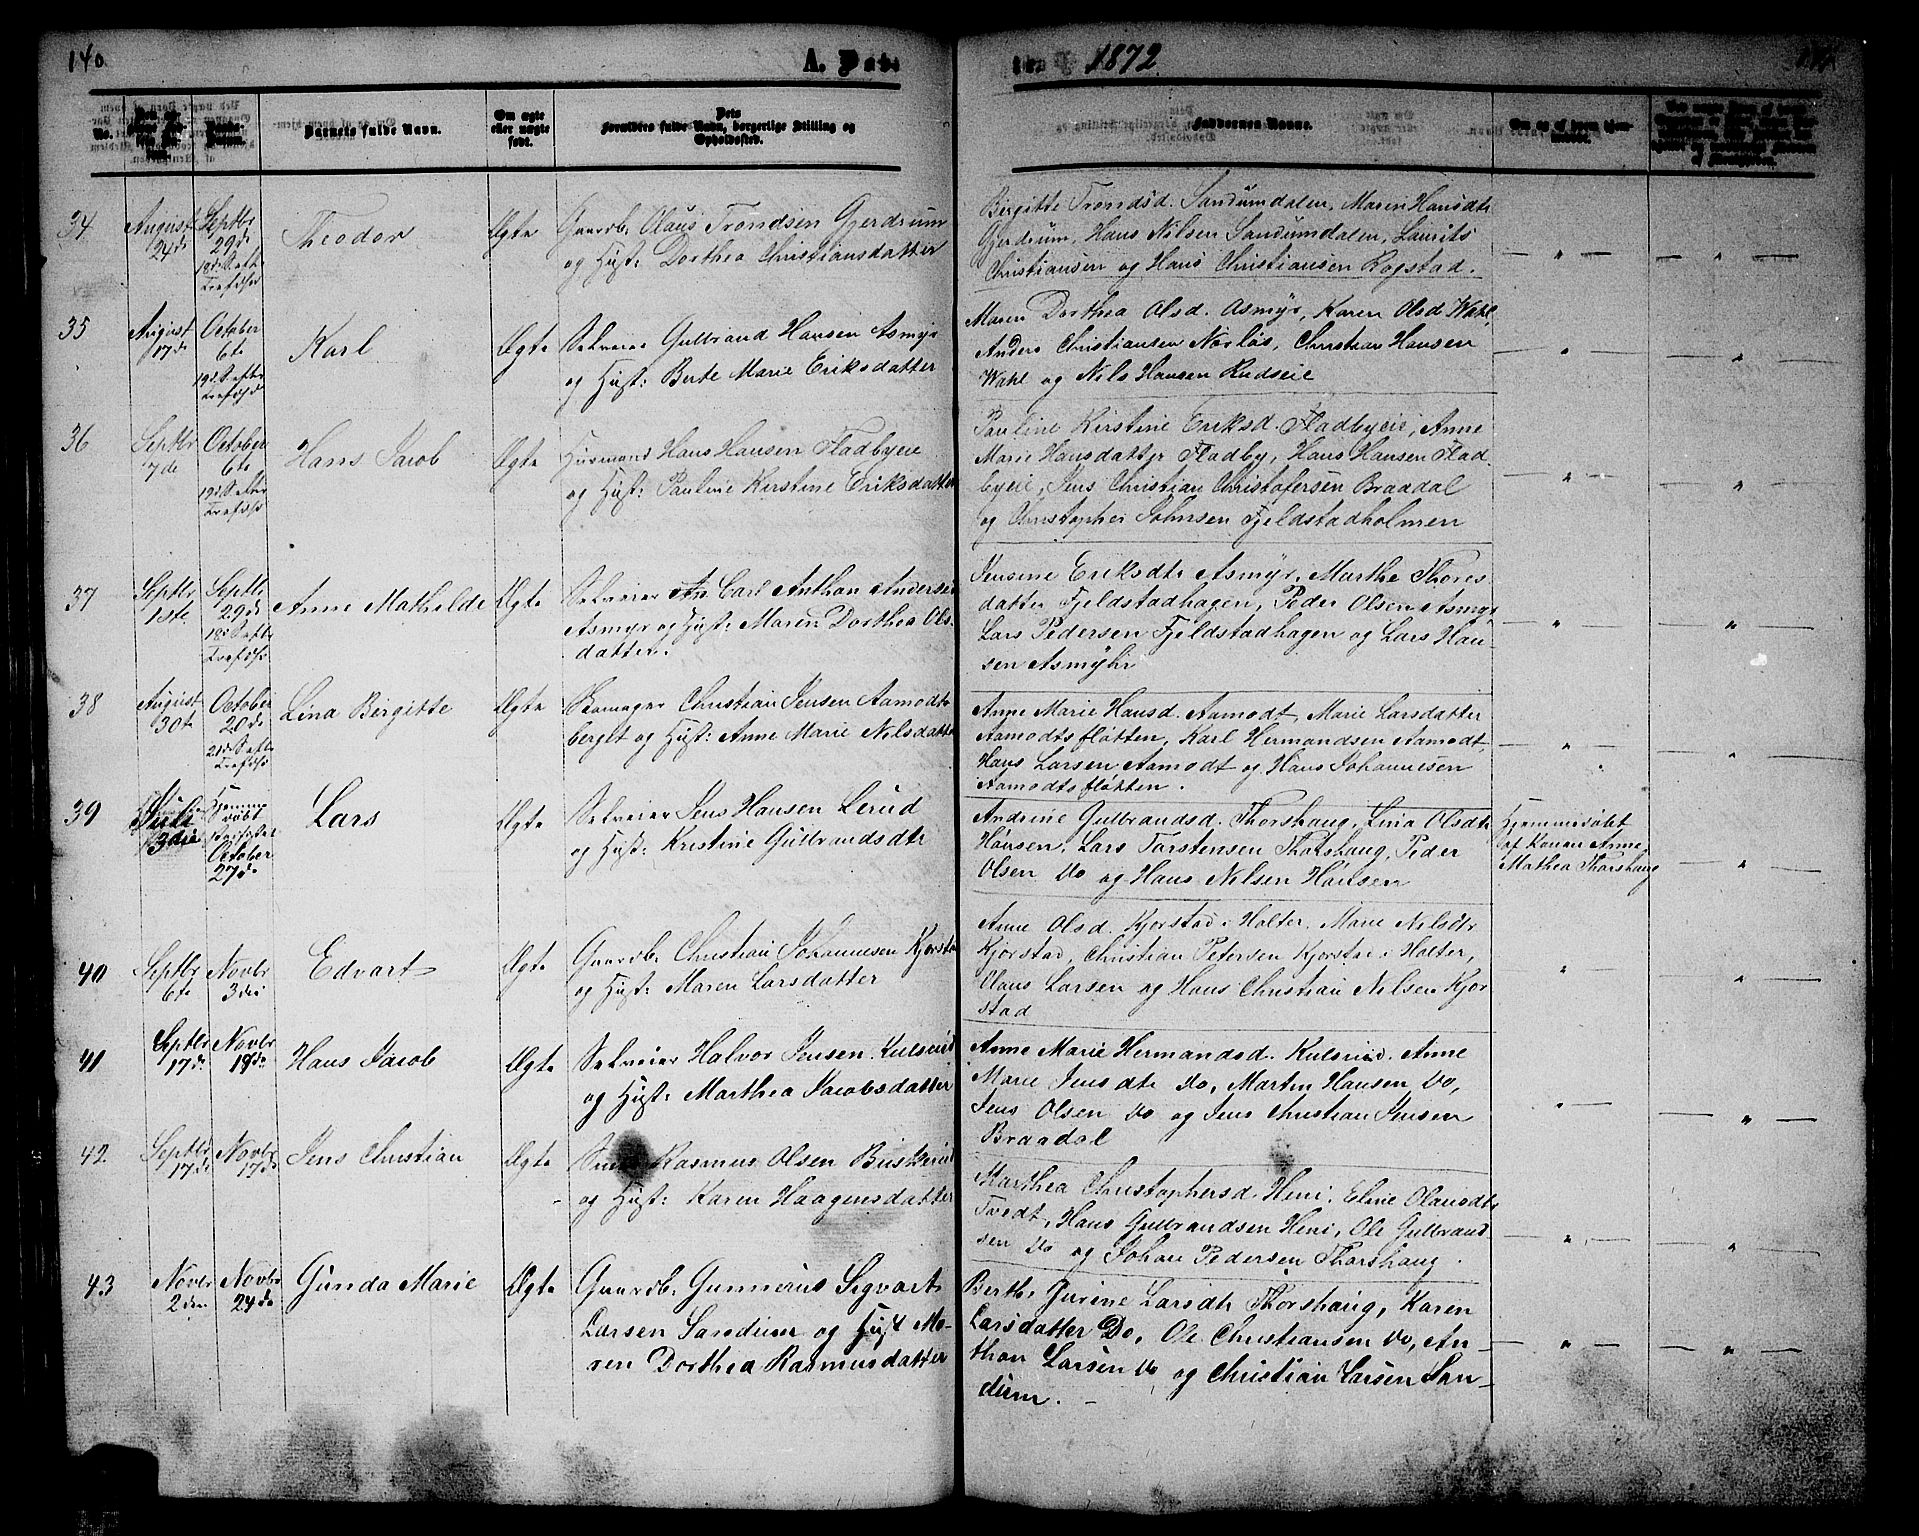 140
A. Døbte. 1872
No.
Barnets fulde Navn.
Om ægte eller uægte født.
Dets Forældres fulde Navn, borgerlige Stilling og Opholdssted.
Faddernes Navne.
34
August 21de
Septbr 29de
18d S. eft. Trefdhs
Theodor
Ægte
Gaardb. Olaus Trondsen Gjerdrum
og Hust: Dorthea Christiansdatter
Birgitte Trondsd. Sandumdalen, Maren Hansdt
Gjerdrum, Hans Nilsen Sandumdalen, Laurits
Christiansen og Hans Christiansen Rogstad.
35
August 17de
October 6te
19d S. efter Trefdhs
Karl
Ægte
Selveier Gulbrand Hansen Asmyr
og Hust: Berte Marie Eriksdatter
Maren Dorthea Olsd. Asmyr, Karen Olsd Wahl,
Anders Christiansen Norløs, Christian Hansen
Wahl og Nils Hansen Rudseie
36
Septbr 7de
October 6te
19d S. efter Trefdhs
Hans Jacob
Ægte
Husmand Hans Hansen Fladbyeie
og Hust: Pauline Kirstine Eriksdatter
Pauline Kirstine Eriksd. Fladbyeie, Anne
Marie Hansdatter Fladby, Hans Hansen Flad-
byeie, Jens Christian Christofersen Braadal
og Christopher Johnsen Fjeldstadholmen
37
Septbr 1ste
Septbr 29de
18d S. eft. Trefdhs
Anne Mathilde
Ægte
Selveier Carl Anthon Andersen
Asmyr og Hust: Maren Dorthea Ols-
datter.
Jensine Eriksdt Asmyr, Marthe Thores
datter Fjeldstadhagen, Peder Olsen Asmyr
Lars Pedersen Fjeldstadhagen og Lars Han-
sen Asmyhr
38
August 30t
October 20de
21d S. eft. Trefdhs
Lina Birgitte
Ægte
Skomager Christian Jensen Aamodt-
berget og Hust: Anne Marie Nilsdatter
Anne Marie Hansd. Aamodt, Marie Larsdatter
Aamodtsfløtten, Karl Hermandsen Aamodt,
Hans Larsen Aamodt og Hans Johannesen
Aamodtsfløtten.
39
Juli 3die
Hjemme døbt
October 27de
Lars
Ægte
Selveier Jens Hansen Lerud
og Hust: Kristine Gulbrandsdtr
Andrine Gulbrandsd. Thorshaug, Lina Olsdt
Hansen, Lars Torstensen Thorshaug, Peder
Olsen Do og Hans Nilsen Hansen
Hjemmedøbt
af Konen Anne
Mathea Thorshaug
40
Septbr 6te
Novbr 3die
Edvart
Ægte
Gaardb. Christian Johannesen Kjorstad
og Hust: Maren Larsdatter
Anne Olsd. Kjorstad i Holter, Marie Nilsdtr
Kjorstad, Christian Petersen Kjorstad i Holter,
Olaus Larsen og Hans Christian Nilsen Kjor
stad
41
Septbr 17de
Novbr 19de
Hans Jacob
Ægte
Selveier Halvor Jensen Kulsrud
og Hust: Marthea Jacobsdatter
Anne Marie Hermandsd. Kulsrud. Anne
Marie Jensdtr Do, Martin Hansen Do,
Jens Olsen Do og Jens Christian Jensen
Braadal
42.
Septbr 17de
Novbr 17de
Jens Christian
Ægte
Rasmus Olsen Buskerud
og Hust: Karen Haagensdatter
Marthea Christophersd. Heni, Eline Olausdtr
Tvedt, Hans Gulbrandsen Heni, Ole Gulbrand
sen Do og Johan Pedersen Thorshaug.
43
Novbr 2den
Novbr 24de
Gunda Marie
Ægte
Gaardb. Gunnerus Sigvart
Larsen Sandum og Hust Ma-
ren Dorthea Rasmusdatter
Berthe Gurine Larsdt Thorshaug, Karen
Larsdatter Do, Ole Christiansen Do, An-
thon Larsen Do og Christian Larsen San-
dum.